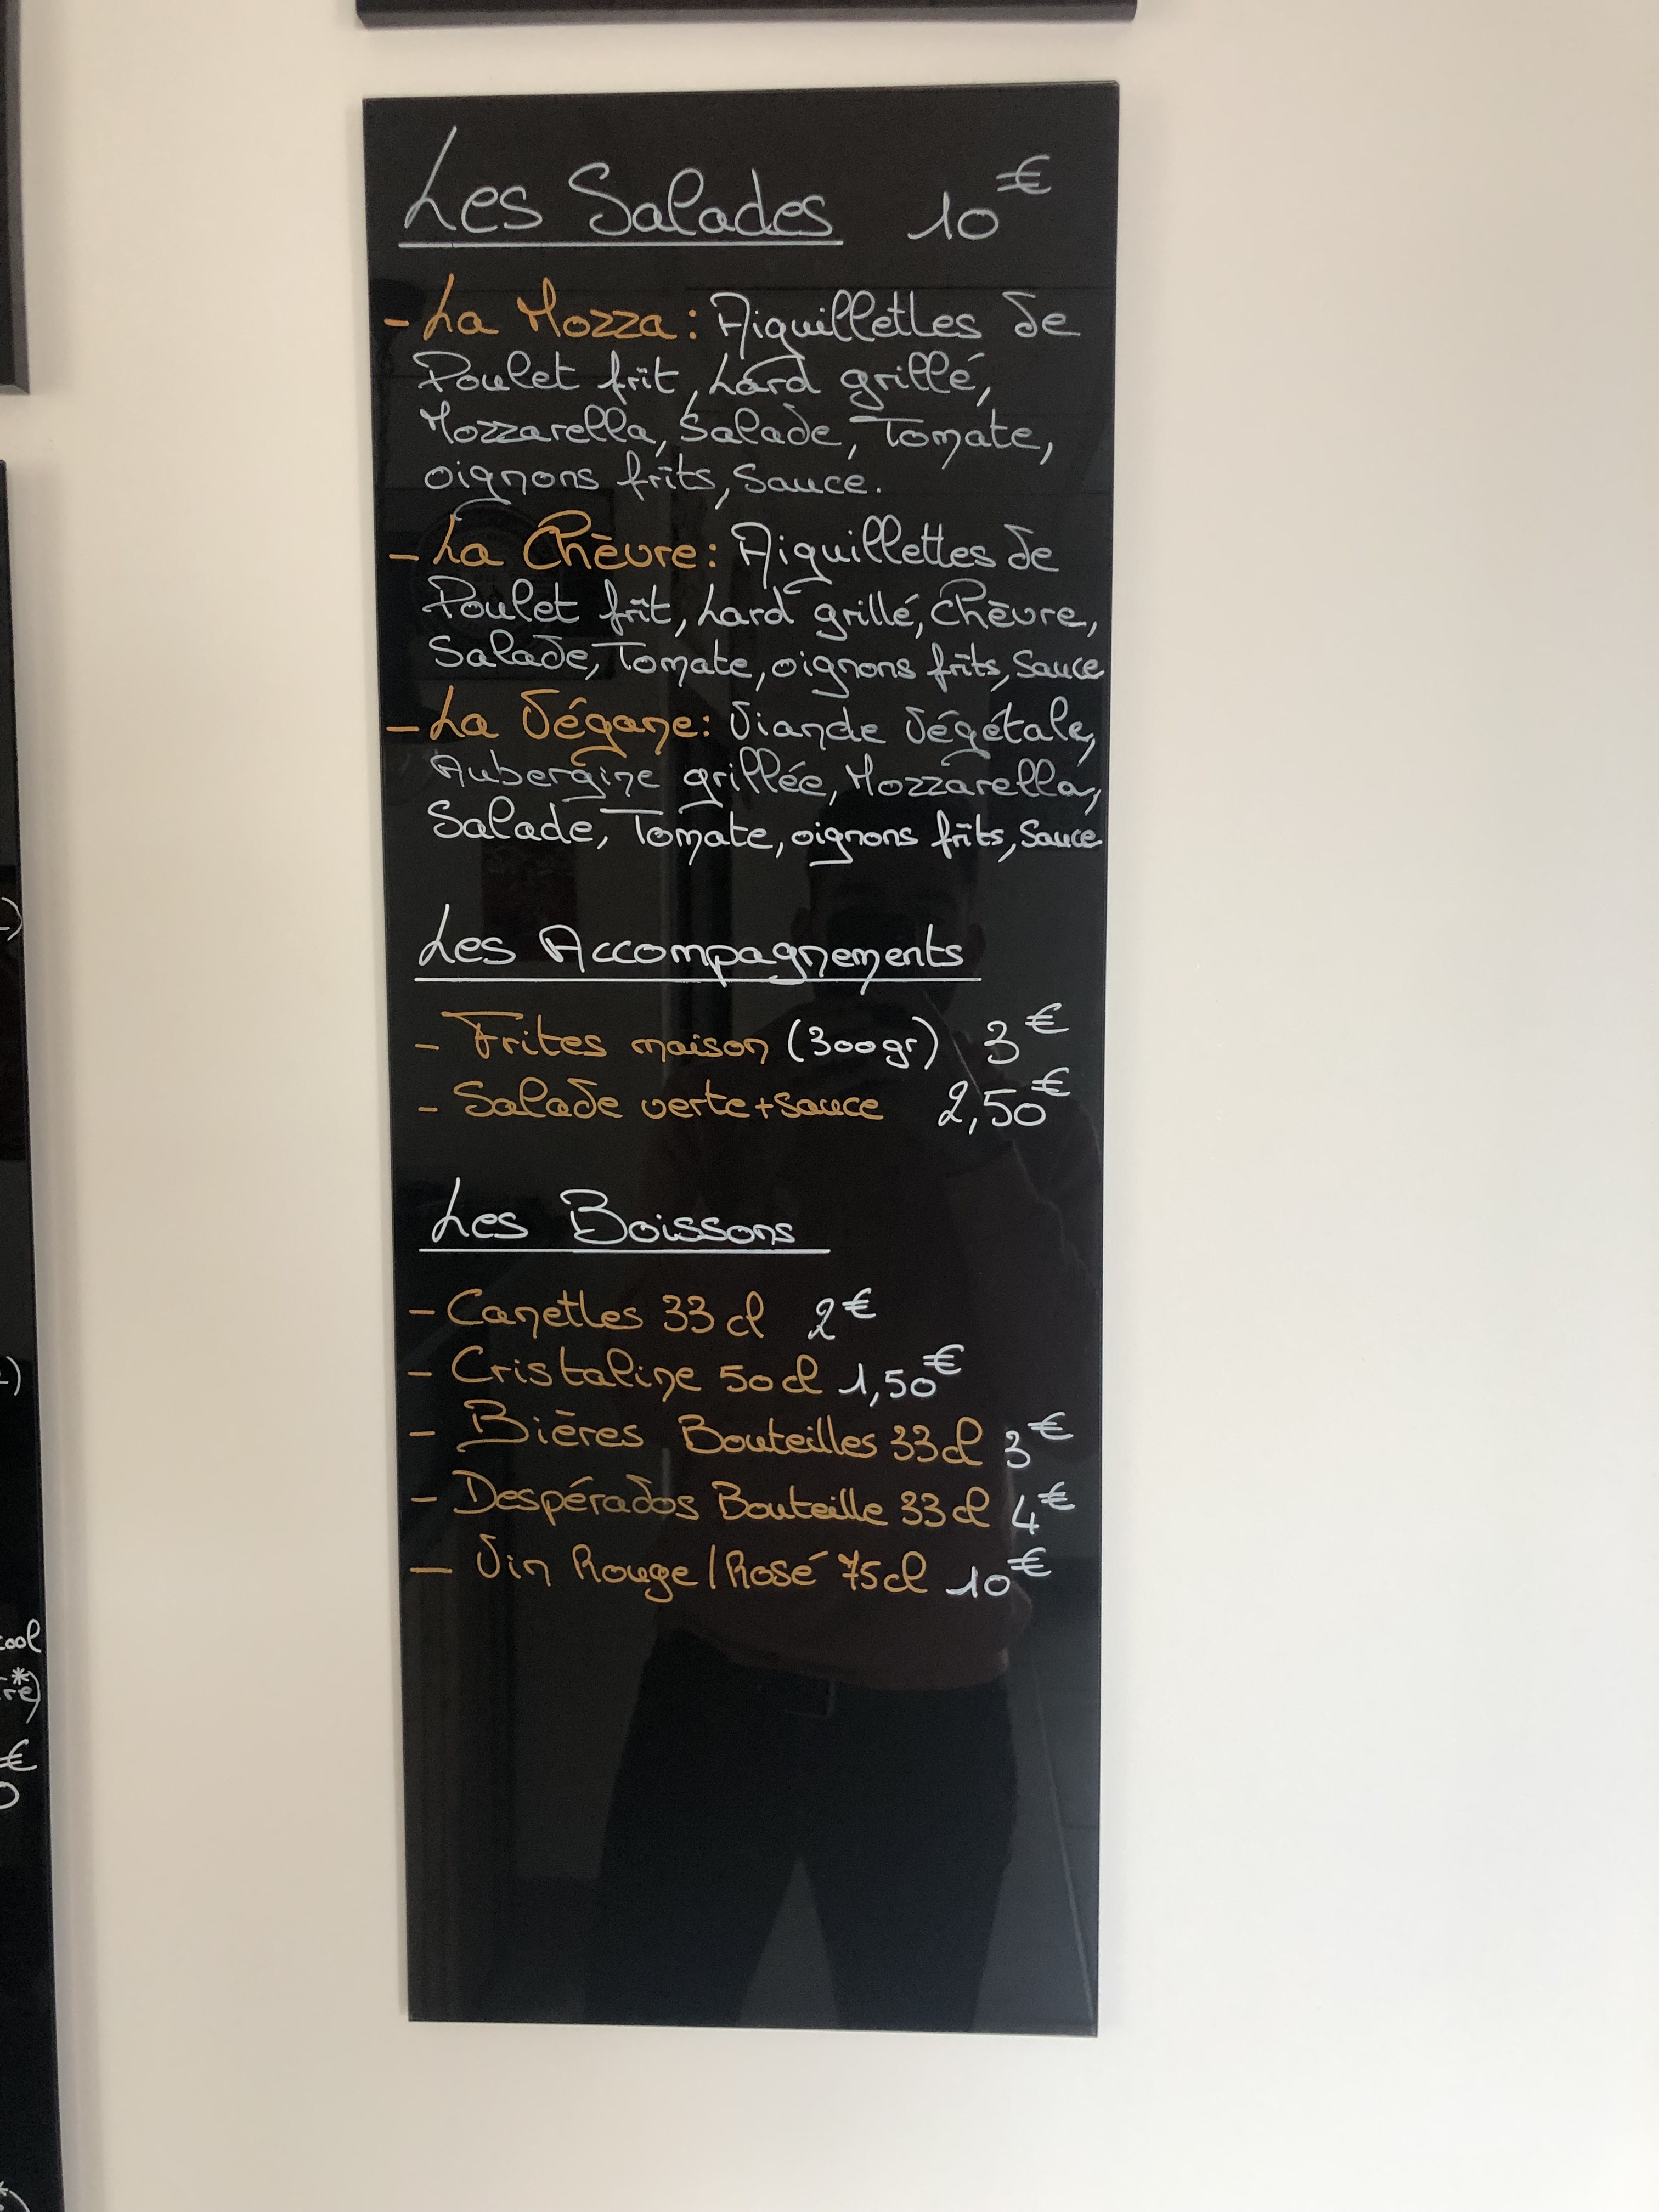 Les Salades 10€
- La Mozza : Aiguillettes de
Poulet frit, Lard grillé,
Mozzarella, Salade, Tomate,
oignons frits, Sauce.
- La Chèvre : Aiguillettes de
Poulet frit, Lard grillé, Chèvre,
Salade, Tomate, oignons frits, Sauce
- La Végane : Viande Végétale,
Aubergine grillée, Mozzarella,
Salade, Tomate, oignons frits, Sauce
Les Accompagnements
- Frites maison (300gr) 3€
- Salade verte + sauce 2,50€
Les Boissons
- Canettes 33 cl 2€
- Cristaline 50 cl 1,50€
- Bières Bouteilles 33 cl 3€
- Despérados Bouteille 33 cl 4€
- Vin Rouge / Rosé 75 cl 10€